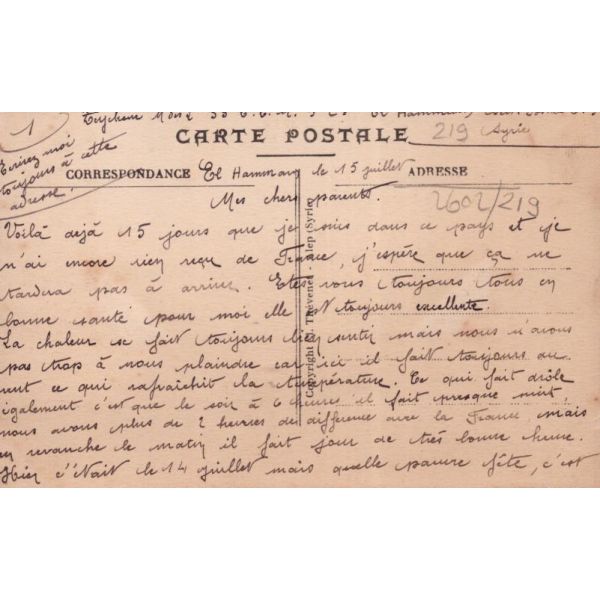 1
219
Syrie
CARTE POSTALE
Ecrivez moi
toujours à cette
adresse.
CORRESPONDANCE El Hammam le 15 juillet ADRESSE
2602/219
Mes chers parents.
Voilà déjà 15 jours que je suis dans ce pays et je
n'ai encore rien reçu de France, j'espère que ça ne
tardera pas à arriver. Etes vous toujours tous en
bonne santé pour moi elle est toujours excellente
La chaleur se fait toujours bien sentir mais nous n'avons
pas trop à nous plaindre car ici il fait toujours du
vent ce qui rafraichit la température. Ce qui fait drôle
également c'est que le soir à 6 heures il fait presque nuit,
nous avons plus de 2 heures de difference avec la France mais
en revanche le matin il fait jour de très bonne heure.
Hier c'était le 14 juillet mais quelle pauvre fête, c'est
Copyright G. Thévenet - Alep (Syrie)